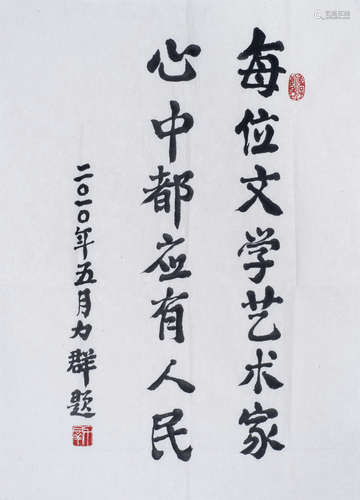 每位文学艺术家
心中都应有人民
二〇一〇年五月力群题